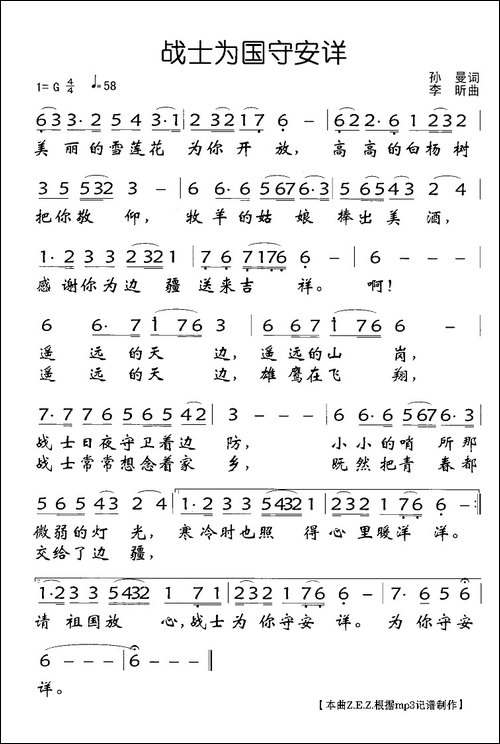 战士为国守安详
1= G 4/4 ♩=58
孙 曼词
李 昕曲
633· 2543·1 | 232176 - | 622·61232 |
美丽的雪莲花 为你开放， 高高的白杨树
355323 - | 66·65676·3 | 56543242 - |
把你敬 仰， 牧羊的姑 娘 捧出美酒，
1·2332321 | 7676176 6 - | 6 - - - |
感谢你为边 疆 送来吉 祥。 啊！
6 6·7176 | 3 671763 | 6 - - - |
遥 远的天 边， 遥远的山 岗，
遥 远的天 边， 雄鹰在飞 翔，
7·776565642 | 3 - - - | 66·65676·3 |
战士日夜守卫着边 防， 小小的哨 所那
战士常常想念着家 乡， 既然把青 春都
5654324 | 1·232354321 | 2321766 - :|
微弱的灯 光， 寒冷时也照 得心里暖洋 洋。
交给了边 疆，
1·23323432171 | 232176 | 6 - 7·657 |
请 祖国放 心，战士为 你守安 详。 为 你守安
6 - - - | 6 - - - ‖
详。
【 本曲Z.E.Z.根据mp3记谱制作】